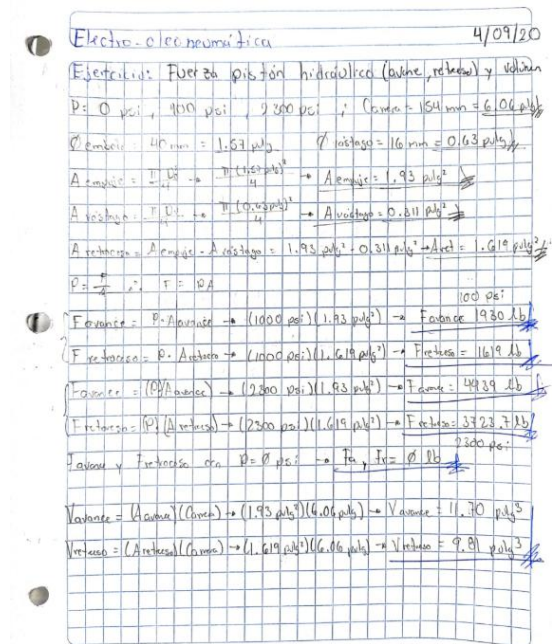 Electro-oleoneumática 4/09/20
Ejercicio: Fuerza pistón hidráulico (avance, retroceso) y volumen
P: 0 psi, 100 psi, 2300 psi ; Carrera = 154 mm = 6.06 pulg
Ø embolo = 40 mm = 1.57 pulg Ø vástago = 16 mm = 0.63 pulg
A empuje = → π(1.57 pulg)² / 4 → A empuje = 1.93 pulg²
A vástago = → π(0.63 pulg)² / 4 → A vástago = 0.311 pulg²
A retroceso = A empuje - A vástago = 1.93 pulg² - 0.311 pulg² → A ret = 1.619 pulg²
P = F/A ∴ F = PA
100 psi
F avance = P·A avance → (1000 psi)(1.93 pulg²) → F avance 1930 lb
F retroceso = P·A → (1000 psi)(1.619 pulg²) → F = 1619 lb
F avance = (P)(A avance) → (2300 psi)(1.93 pulg²) → F avance = 4439 lb
F = (P)(A) → (2300 psi)(1.619 pulg²) → F = 3723.7 lb
2300 psi
F avance y F retroceso con P = Ø psi → Fa, Fr = Ø lb
V avance = (A avance)(Carrera) → (1.93 pulg²)(6.06 pulg) → V avance = 11.70 pulg³
V = (A)(Carrera) → (1.619 pulg²)(6.06 pulg) → V = 9.81 pulg³